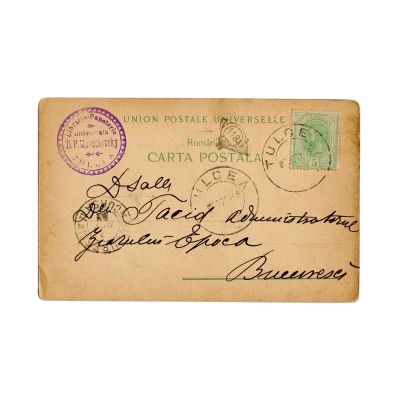 UNION POSTALE UNIVERSELLE
România
CARTA POSTALA
Librarie-Papeterie
universala
TULCEA
TULCEA
TULCEA
5
D Sale
Tacid Administratorul
Ziarului Epoca
Bucuresci